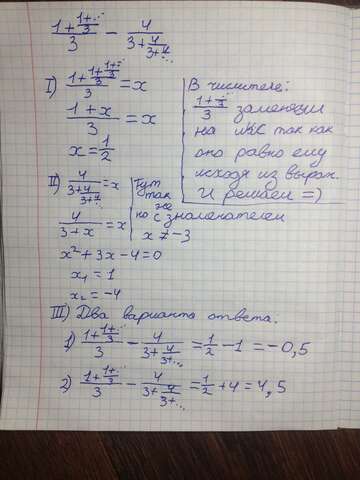 \frac{1+\frac{1+...}{3}}{3} - \frac{4}{3+\frac{4}{3+...}}
I) \frac{1+\frac{1+\frac{1+...}{3}}{3}}{3} = x
\frac{1+x}{3} = x
x = \frac{1}{2}
В числителе:
\frac{1+...}{3} заменяем
на икс так как
оно равно ему
исходя из выраж.
И решаем =)
II) \frac{4}{3+\frac{4}{3+...}} = x
\frac{4}{3+x} = x
x² + 3x - 4 = 0
x₁ = 1
x₂ = -4
Тут
так же
но с знаменателем
x ≠ -3
III) Два варианта ответа:
1) \frac{1+\frac{1+...}{3}}{3} - \frac{4}{3+\frac{4}{3+...}} = \frac{1}{2} - 1 = -0,5
2) \frac{1+\frac{1+...}{3}}{3} - \frac{4}{3+\frac{4}{3+...}} = \frac{1}{2} + 4 = 4,5